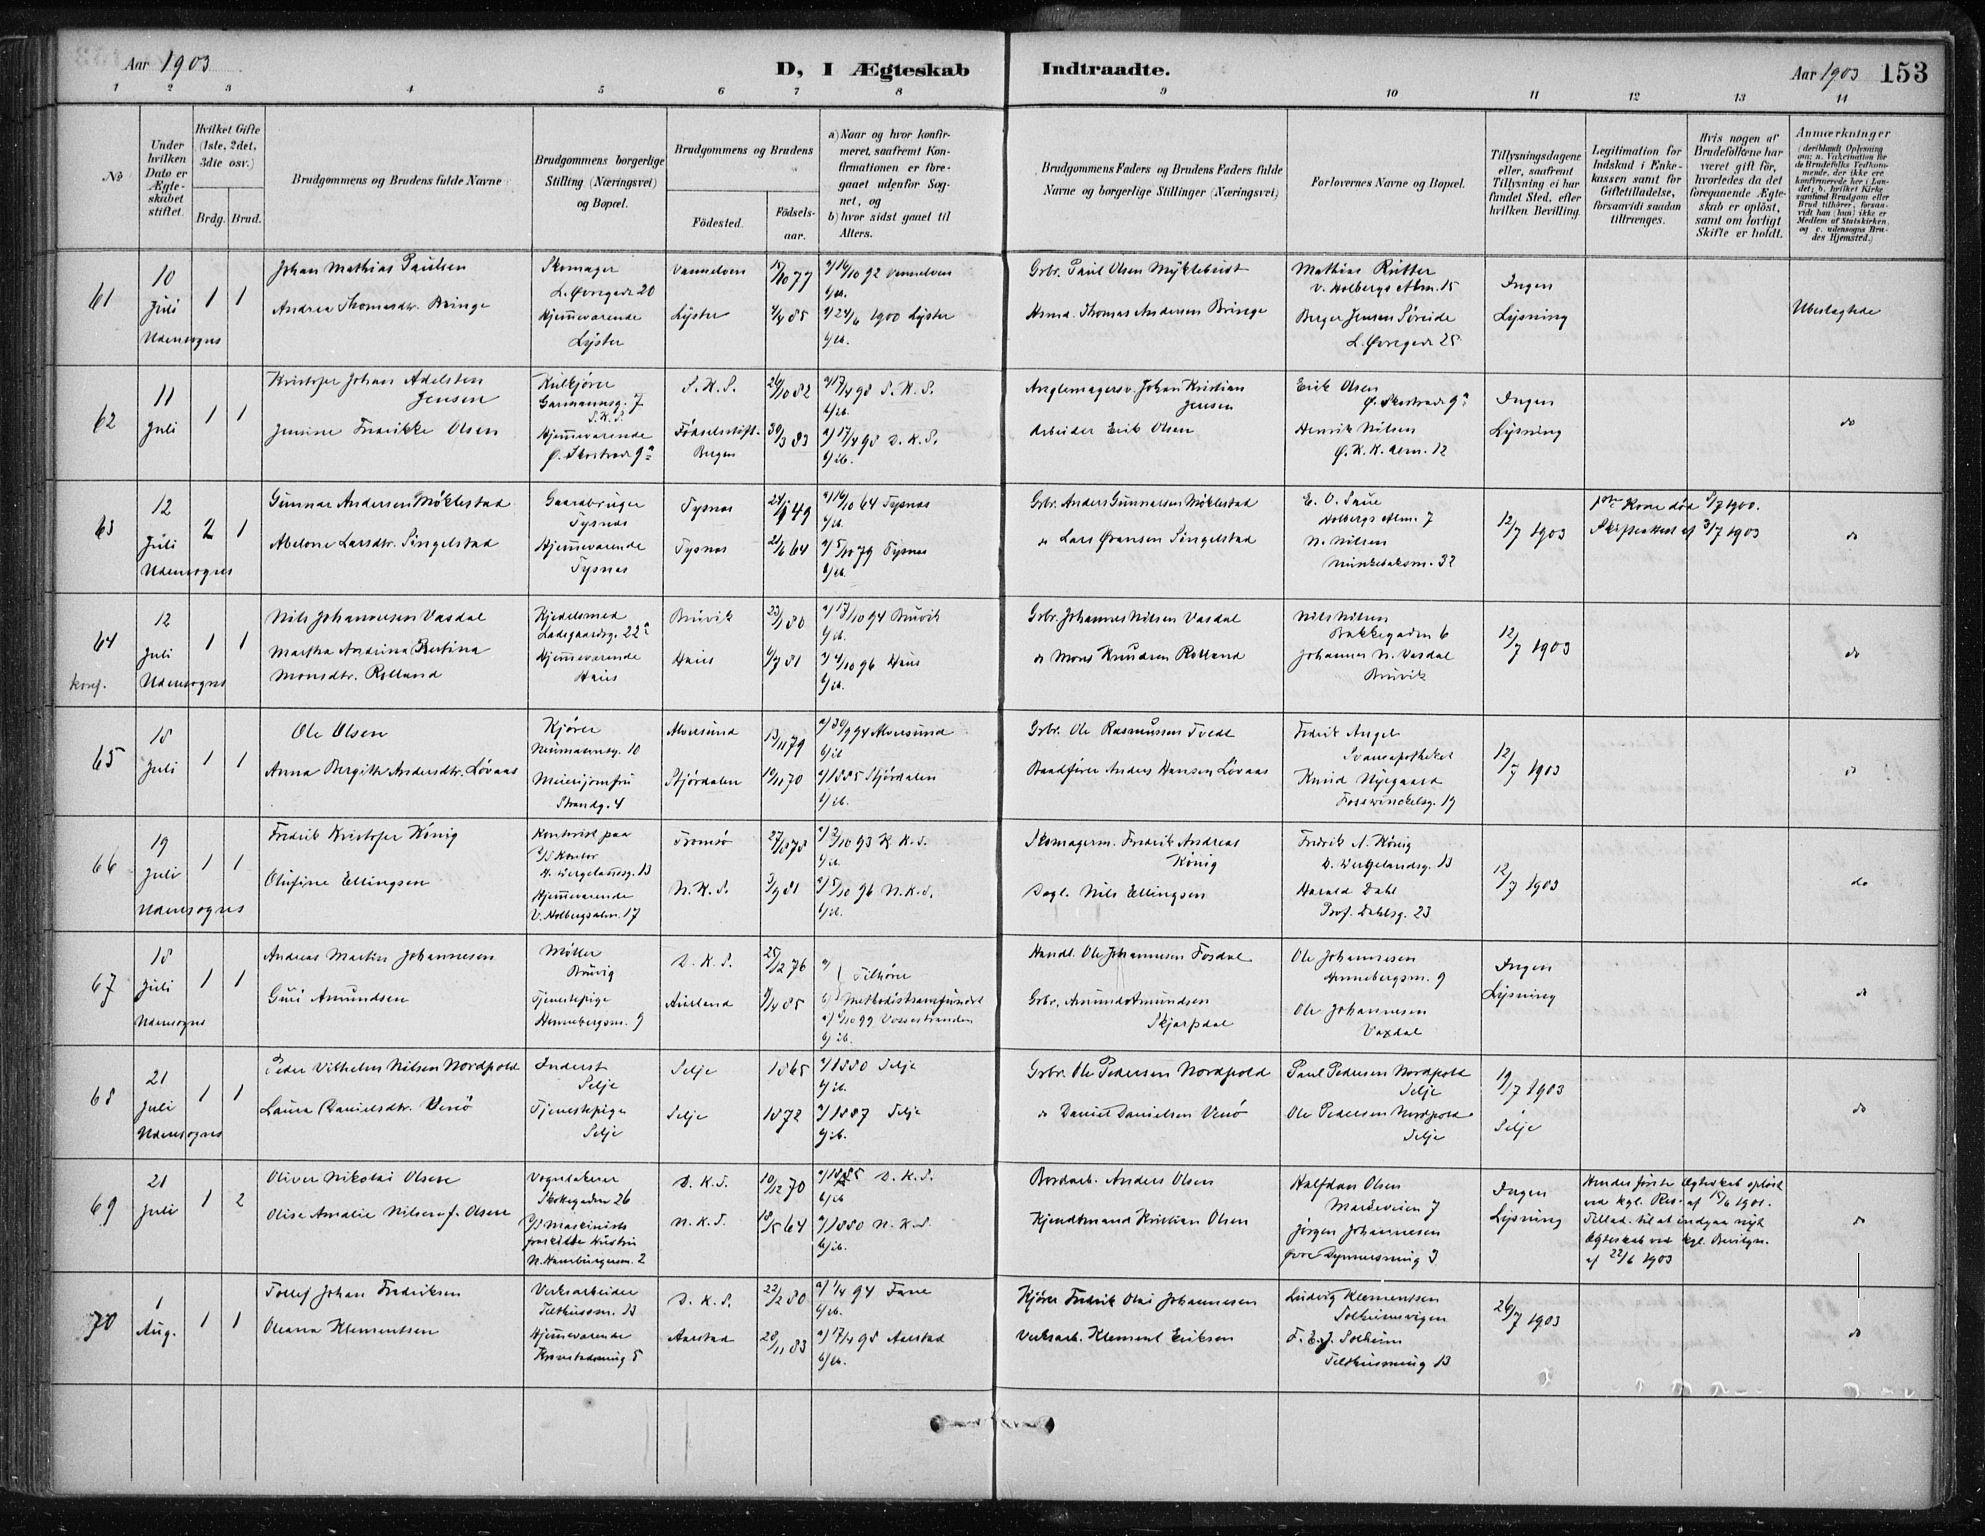 Aar 1903
D, I Ægteskab
Indtraadte.
Aar 1903 153
1 2 3 4 5 6 7 8 9 10 11 12 13 14
No
Under hvilken Dato er Ægteskabet stiftet.
Hvilket Gifte (1ste, 2det, 3die osv.)
Brdg. Brud.
Brudgommens og Brudens fulde Navne
Brudgommens borgerlige Stilling (Næringsvei) og Bopæl.
Brudgommens og Brudens
Födested.
Födselsaar.
a) Naar og hvor konfirmeret, saafremt Konfirmationen er foregaaet udenfor Sognet, og
b) hvor sidst gaaet til Alters.
Brudgommens Faders og Brudens Faders fulde Navne og borgerlige Stillinger (Næringsvei)
Forlovernes Navne og Bopæl.
Tillysningsdagene eller, saafremt Tillysning ei har fundet Sted, efter hvilken Bevilling.
Legitimation for Indskud i Enkekassen samt for Giftetilladelse, forsaavidt saadan tiltrænges.
Hvis nogen af Brudefolkene har været gift för, hvorledes da det foregaaende Ægteskab er oplöst, samt om lovligt Skifte er holdt.
Anmærkninger
61
10 Juli Udensogns
1 1
Johan Mathias Paulsen
Andrea Thomasdtr. Bringe
Skomager
L. Øvregade 20
Hjemmeværende
Lyster
Vannelven
Lyster
15/10 77
4/4 85
a) 16/10 92 Vannelven
b) ib.
a) 24/6 1900 Lyster
b) ib.
Grbr. Paul Olsen Myklebust
Husmd. Thomas Andersen Bringe
Mathias Rutter
V. Holbergs Alm. 15
Berger Jensen Søreide
L. Øvregade 25
Ingen Lysning
Ubeslægtede
62
11 Juli
1 1
Kristofer Johan Adelsten Jensen
Jensine Fredrikke Olsen
Kulkjører
Garmannsg. 7
S. K. S.
Hjemmeværende
Ø. Skostræde 9a
S. K. S.
Fødselsstift. Bergen
26/10 82
30/3 83
a) 17/4 98 S. K. S.
b) ib.
a) 17/4 98 D. K. S.
b) ib.
Johan Kristian Jensen
Arbeider Erik Olsen
Erik Olsen
Ø. Skostræde 9a
Henrik Nilsen
Ø. K. K. Alm. 12
Ingen Lysning
do
63
12 Juli Udensogns
2 1
Gunnar Andersen Møklestad
Abelone Larsdtr. Singelstad
Gaardbruger
Tysnæs
Hjemmeværende
Tysnæs
Tysnæs
Tysnæs
24/9 49
21/6 64
a) 16/10 64 Tysnæs
b) ib.
a) 5/10 79 Tysnæs
b) ib.
Grbr. Anders Gunnarsen Møklestad
do Lars Øvansen Singelstad
E. O. Saue
Holbergs Alm. 7
N. Nilsen
Munkebaksm. 32
12/7 1903
1ste Kone død 5/7 1900.
Skifteattest af 3/7 1903
do
64
konf.
12 Juli Udensogns
1 1
Nils Johannessen Vasdal
Martha Andrina Bertina Monsdtr. Rolland
Kjedelsmed
Ladegaardsg. 22a
Hjemmeværende
Haus
Bruvik
Haus
23/1 80
6/7 81
a) 17/10 94 Bruvik
b) ib.
a) 4/10 96 Haus
b) ib.
Grbr. Johannes Nilsen Vasdal
do Mons Knudsen Rolland
Nils Nilsen
Bakkegaden 6
Johannes N. Vasdal
Bruvik
12/7 1903
do
65
18 Juli
1 1
Ole Olsen
Anna Bergitte Andersdtr. Løvaas
Kjører
Neumannsg. 10
Meierijomfru
Strandg. 4
Alversund
Stjørdalen
13/11 79
10/11 70
a) 30/9 94 Alversund
b) ib.
a) 1885 Stjørdalen
b) ib.
Grbr. Ole Rasmussen Tvedt
Baadfører Anders Hansen Løvaas
Fredrik Angel
Svaneapotheket
Knud Nygaard
Fosswinckelsg. 19
12/7 1903
do
66
19 Juli Udensogns
1 1
Fredrik Kristofer König
Olufine Ellingsen
Kontorist paa
H. Wergelandsg. 13
Hjemmeværende
V. Holbergsalm. 17
Tromsø
N. K. S.
27/8 78
3/9 81
a) 2/10 93 K. K. S.
b) ib.
a) 5/10 96 N. K. S.
b) ib.
Skomagerm. Fredrik Andreas König
Dagl. Nils Ellingsen
Fredrik A. König
H. Wergelandsg. 13
Harald Dahl
Prof. Dahlsg. 23
12/7 1903
do
67
18 Juli Udensogns
1 1
Andreas Martin Johannesen
Guri Amundsen
Møller
Bruvig
Tjenestepige
Hennebergsm. 9
D. K. S.
Aurland
25/12 76
9/4 85
a)
b) Tilhører Methodistsamfundet
a) 1/10 99 Vossestranden
b) ib.
Handl. Ole Johannesen Fosdal
Grbr. Amund Amundsen Skjærpdal
Ole Johannesen
Hennebergsm. 9
Ole Johannesen
Vaxdal
Ingen Lysning
do
68
21 Juli Udensogns
1 1
Peder Vilhelm Nilsen Nordpold
Laura Danielsdtr. Venø
Inderst
Selje
Tjenestepige
Selje
Selje
Selje
1865
1872
a) 1880 Selje
b) ib.
a) 1887 Selje
b) ib.
Grbr. Ole Pedersen Nordpold
do Daniel Danielsen Venø
Paul Pedersen Nordpold
Selje
Ole Pedersen Nordpold
Selje
19/7 1903
Selje
do
69
21 Juli
1 2
Oliver Nikolai Olsen
Olise Amalie Nilsen f. Olsen
Vognlakerer
Skottegaden 26
Maskinists
fraskilte Hustru
N. Hamburgersm. 2
D. K. S.
N. K. S.
10/12 70
18/5 64
a) 1885 D. K. S.
b) ib.
a) 1880 N. K. S.
b) ib.
Bordarb. Anders Olsen
Kjendtmand Kristian Olsen
Halfdan Olsen
Marieveien 7
Jørgen Johannesen
Øvre Dyvekesmug 3
Ingen Lysning
Hendes første Ægteskab opløst
ved kgl. Res. af 15/6 1901.
Tillad. til at indgaa nyt
Ægteskab ved kgl. Bevilgn.
af 22/6 1903
do
70
1 Aug.
1 1
Tollef Johan Fredriksen
Oleana Klementsen
Verksarbeider
Tolthussm. 13
Hjemmeværende
D. K. S.
Aalestad
22/2 80
28/11 83
a) 1/4 94 Fane
b) ib.
a) 17/4 98 Aalestad
b) ib.
Kjører Fredrik Olai Johannesen
Verksarb. Klement Eriksen
Ludvig Klementsen
Solheimsvigen
F. E. J. Solheim
26/7 1903
do